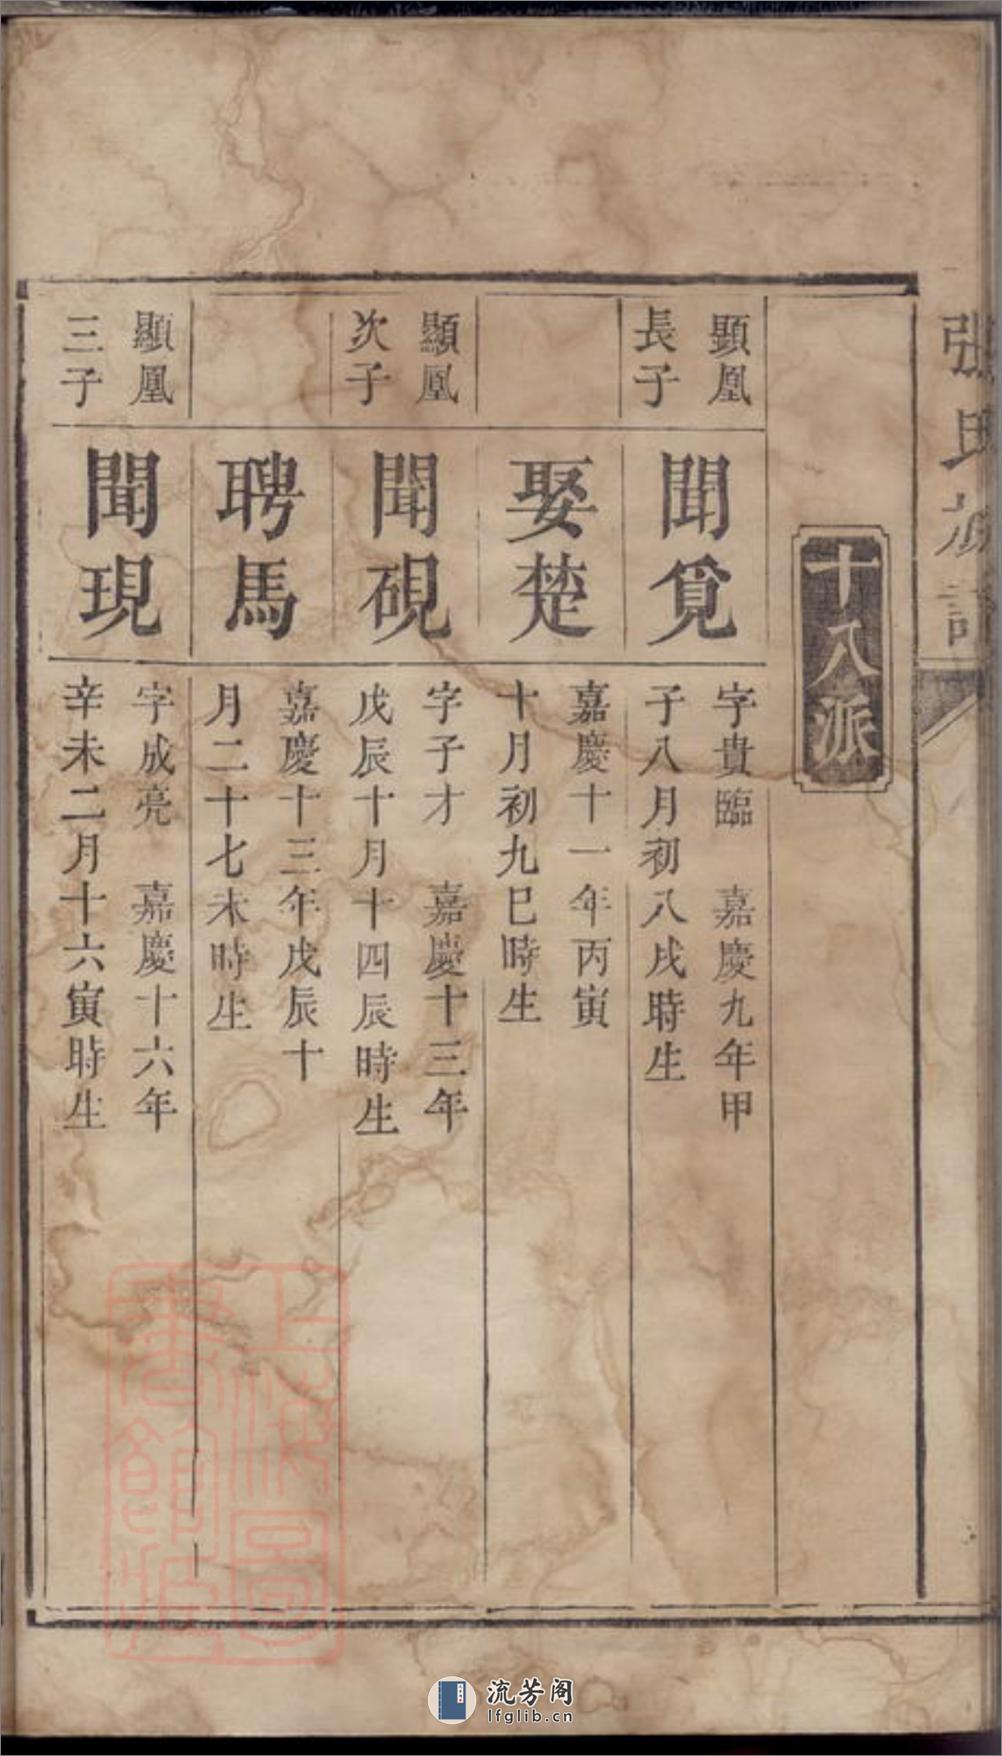 張氏族譜
十八派
顯凰
長子
聞覓
字貴臨　嘉慶九年甲
子八月初八戌時生
娶楚
嘉慶十一年丙寅
十月初九巳時生
顯凰
次子
聞硯
字子才　嘉慶十三年
戊辰十月十四辰時生
聘馬
嘉慶十三年戊辰十
月二十七未時生
顯凰
三子
聞現
字成亮　嘉慶十六年
辛未二月十六寅時生
上海圖
書館藏
流芳阁
lfglib.cn